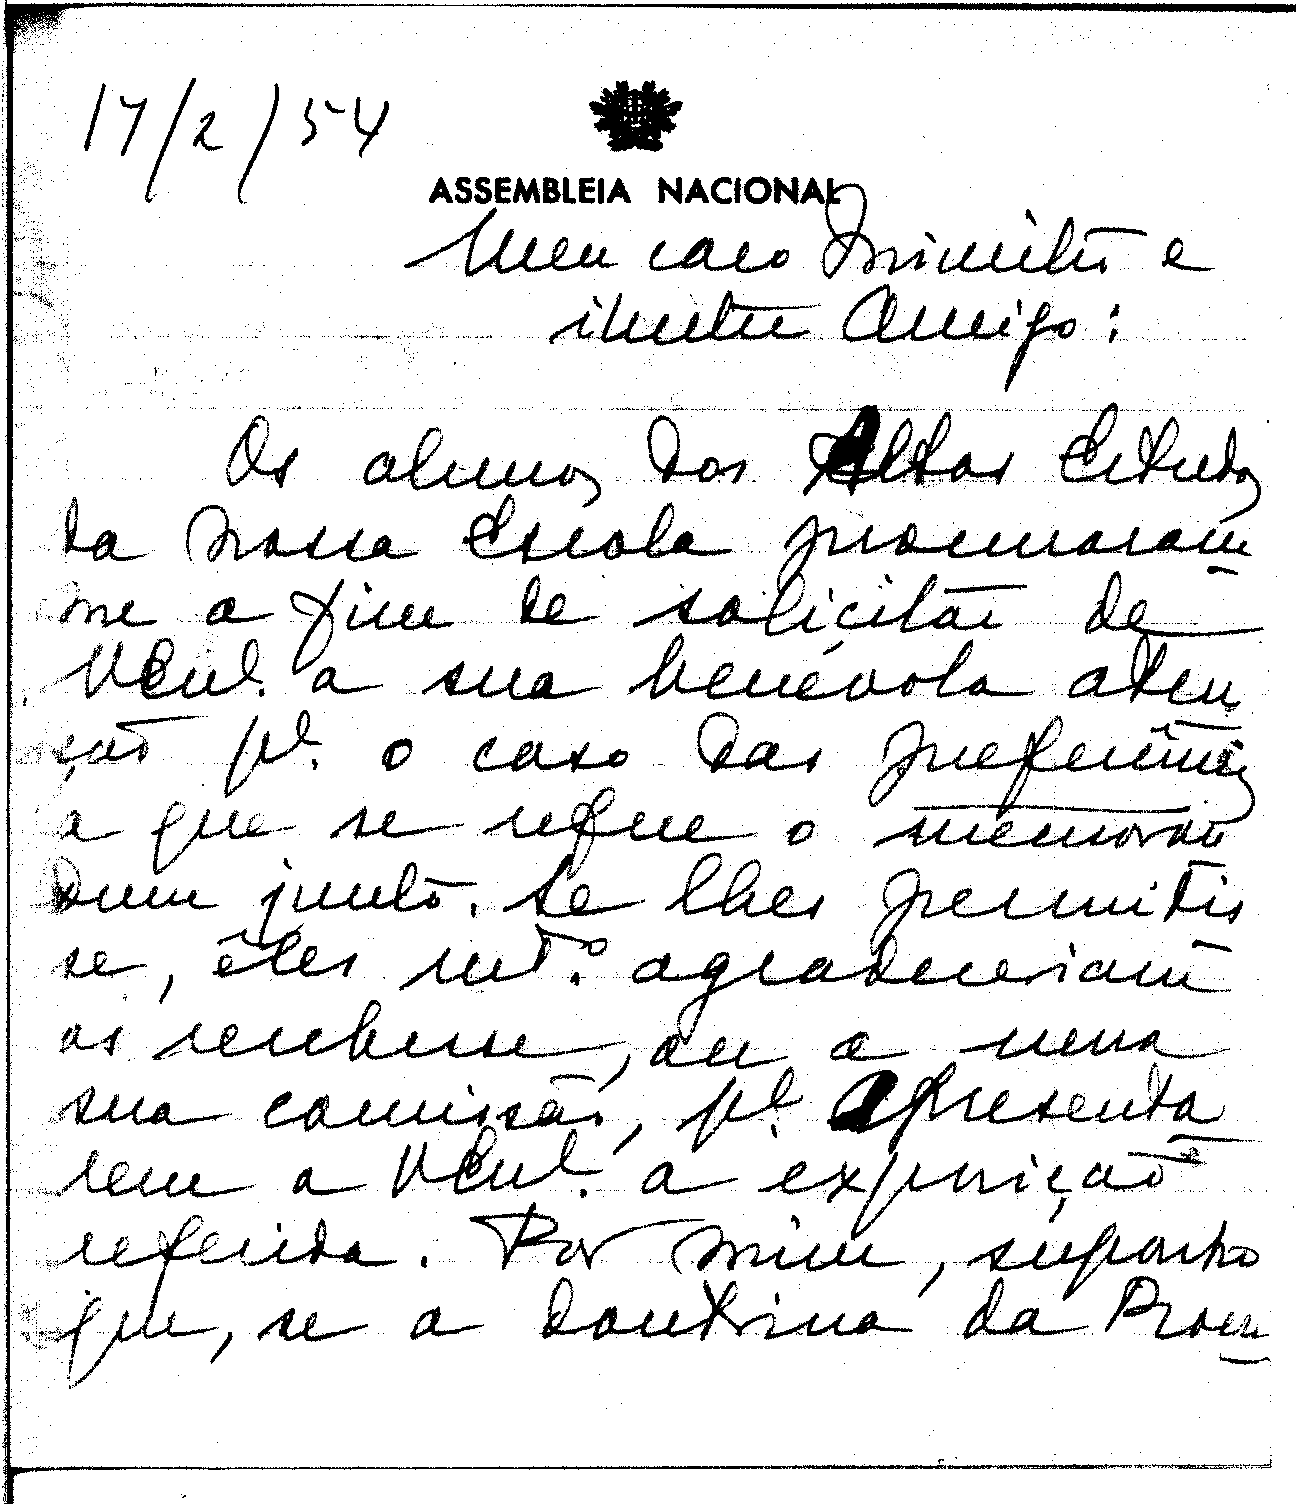 17/2/54
ASSEMBLEIA NACIONAL
Meu caro Ministro e
ilustre Amigo:
Os alunos dos Altos Estudos
da nossa Escola procuraram
me a fim de solicitar de
VExcl. a sua benévola aten
ção pl. o caso das preferências
a que se refere o memoran
dum junto. Se lhes permitis
se, êles mt.º agradeceriam
os recebesse, ou a uma
sua comissão, pl. apresenta
rem a VExcl. a exposição
referida. Por mim, suponho
que, se a doutrina da Procu